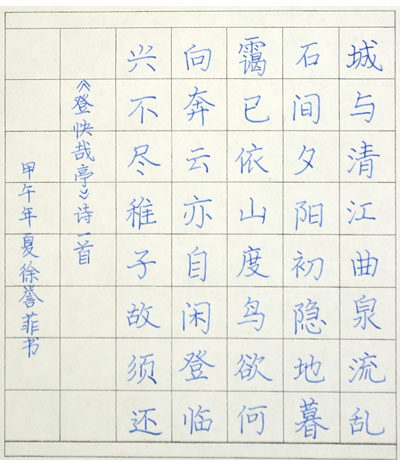 城与清江曲泉流乱
石间夕阳初隐地暮
霭已依山度鸟欲何
向奔云亦自闲登临
兴不尽稚子故须还
《登快哉亭》诗一首
甲午年夏徐誉菲书